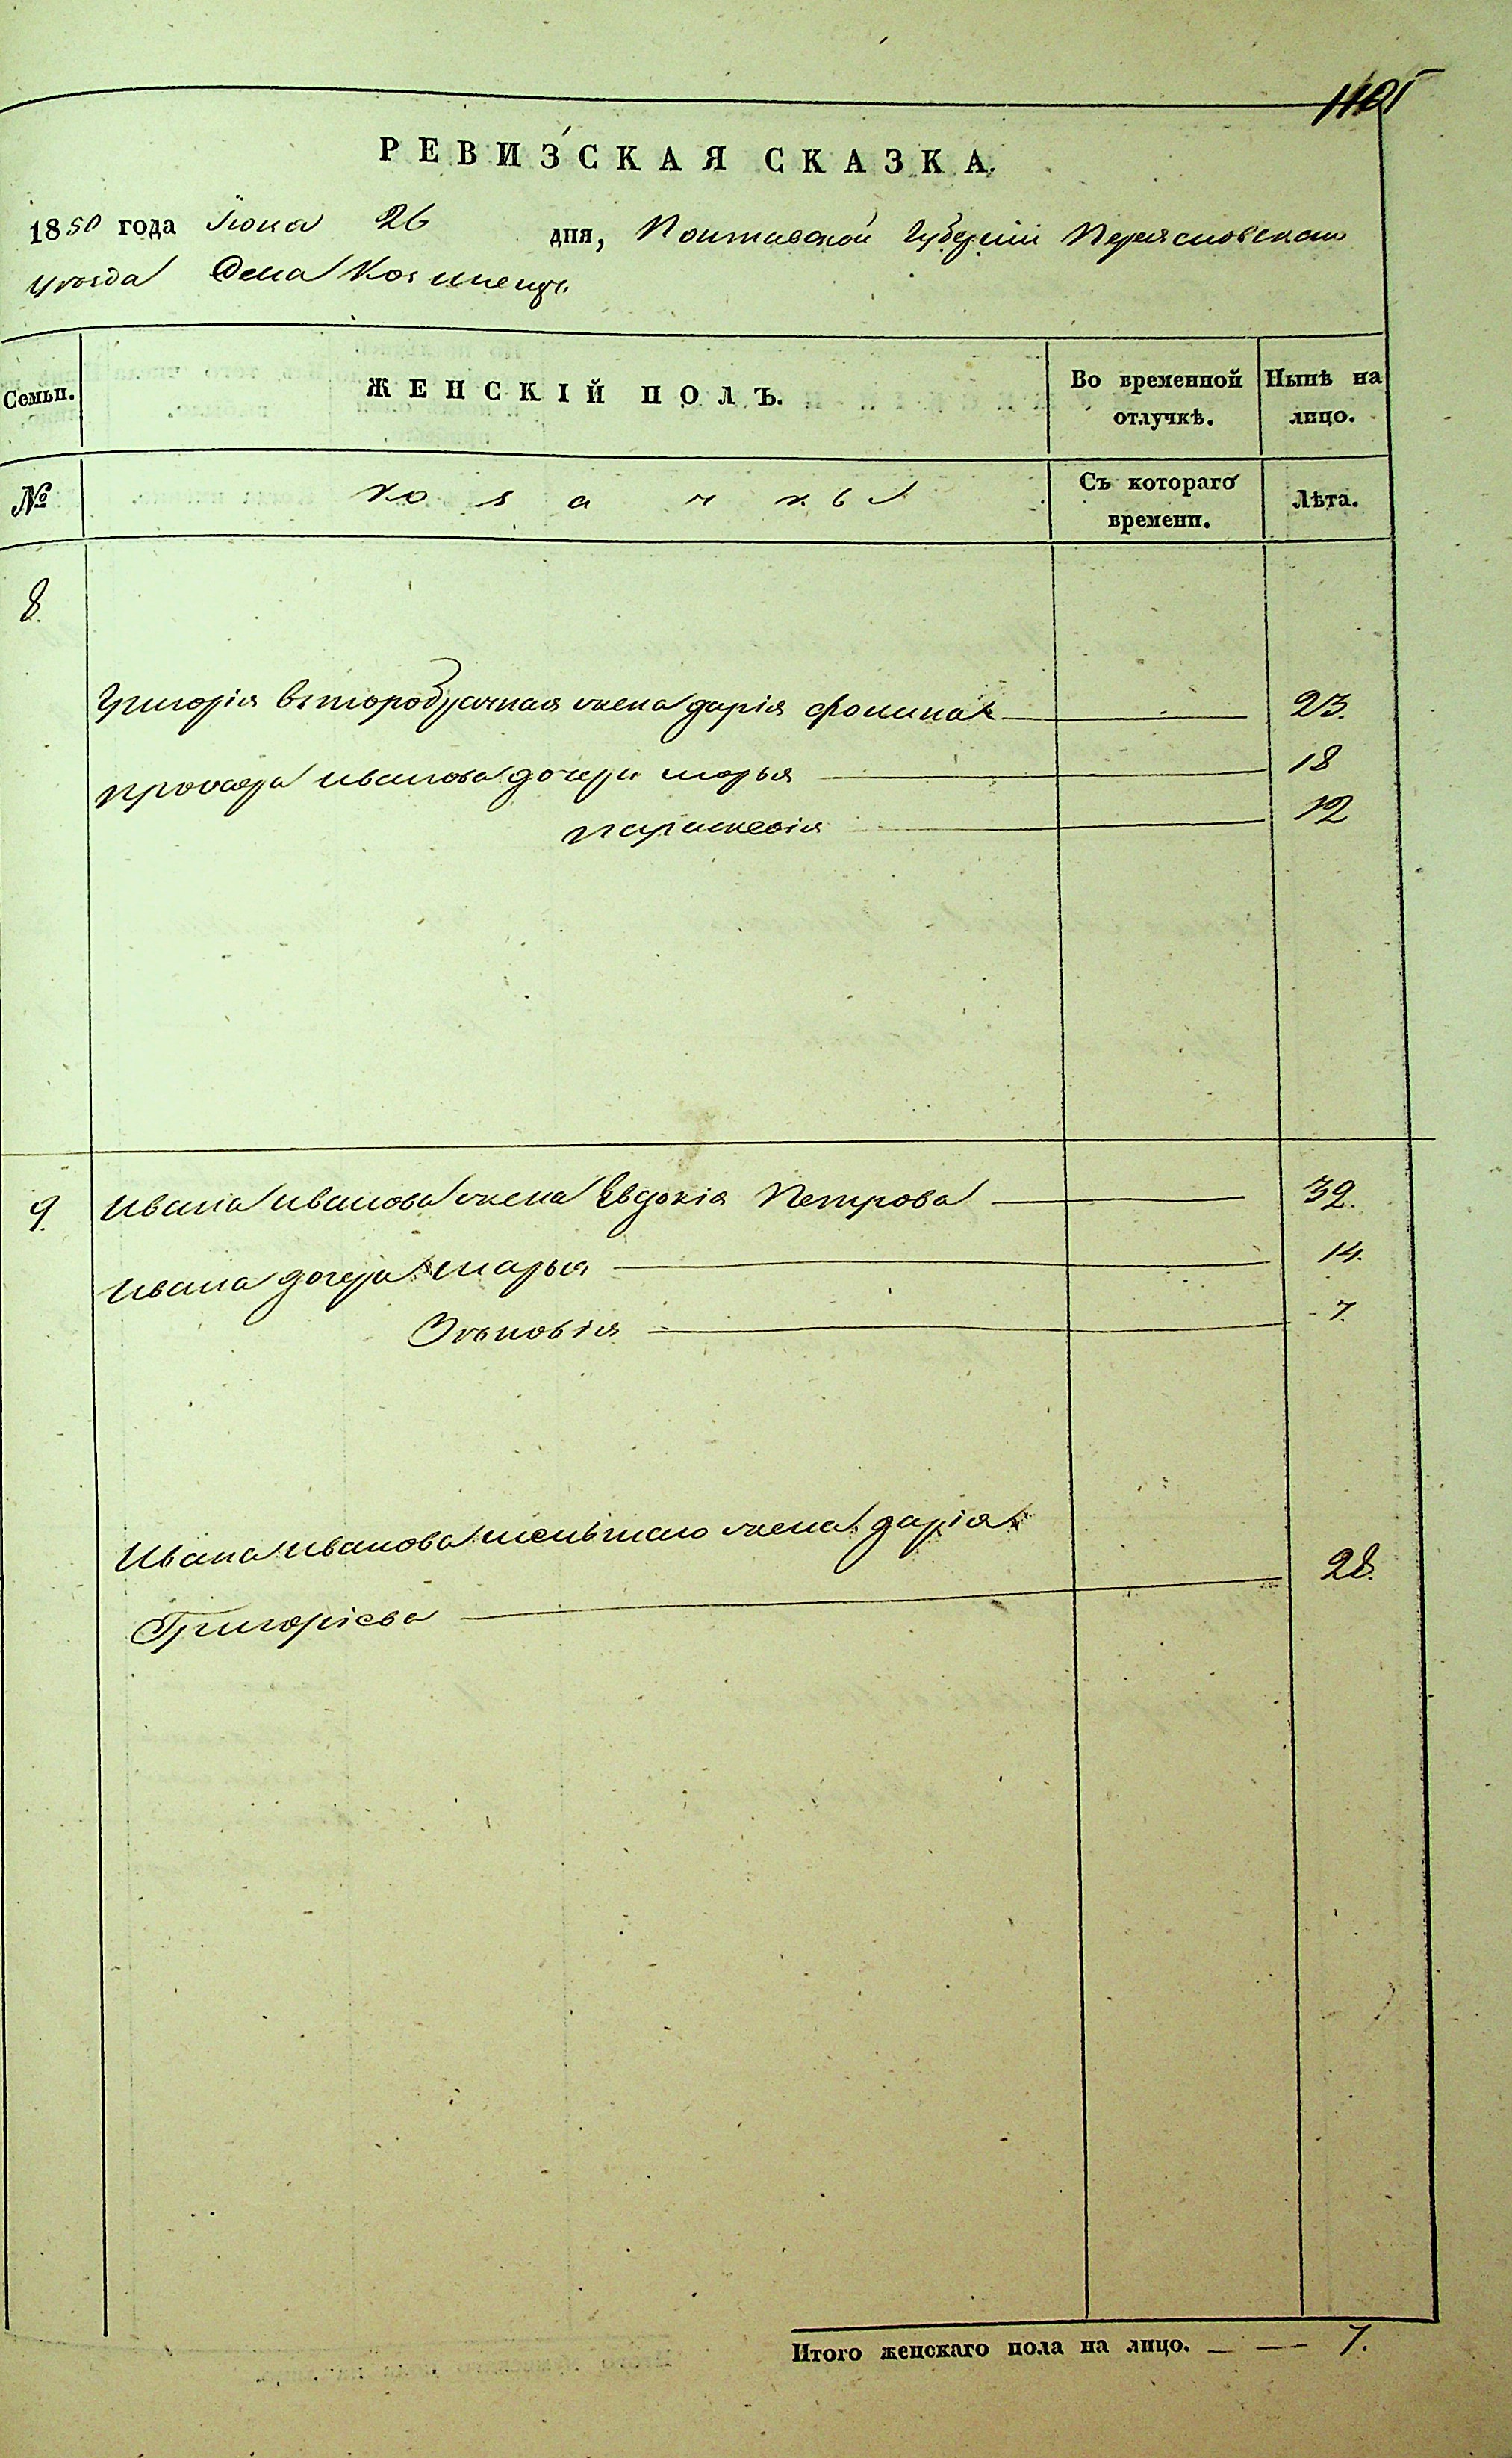 РЕВИЗСКАЯ СКАЗКА.
1850 года Июня 26 дня, Полтавской Губернии Переясловскаго
уезда Села
Семьи. ЖЕНСКІЙ ПОЛЪ. Во временной отлучкѣ. Нынѣ на лицо.
№ козачки Съ котораго времени. Лѣта.
8.
Григорія второбрачная жена Дарія Фомина 23.
Иванова дочери Марья 18
Параскевія 12
9. Ивана Иванова жена Евдокія Петрова 32.
Ивана дочери Марья 14.
Зѣновія 7.
Ивана Иванова меньшаго жена Дарія
Григоріева 28.
Итого женскаго пола на лицо. — — 7.